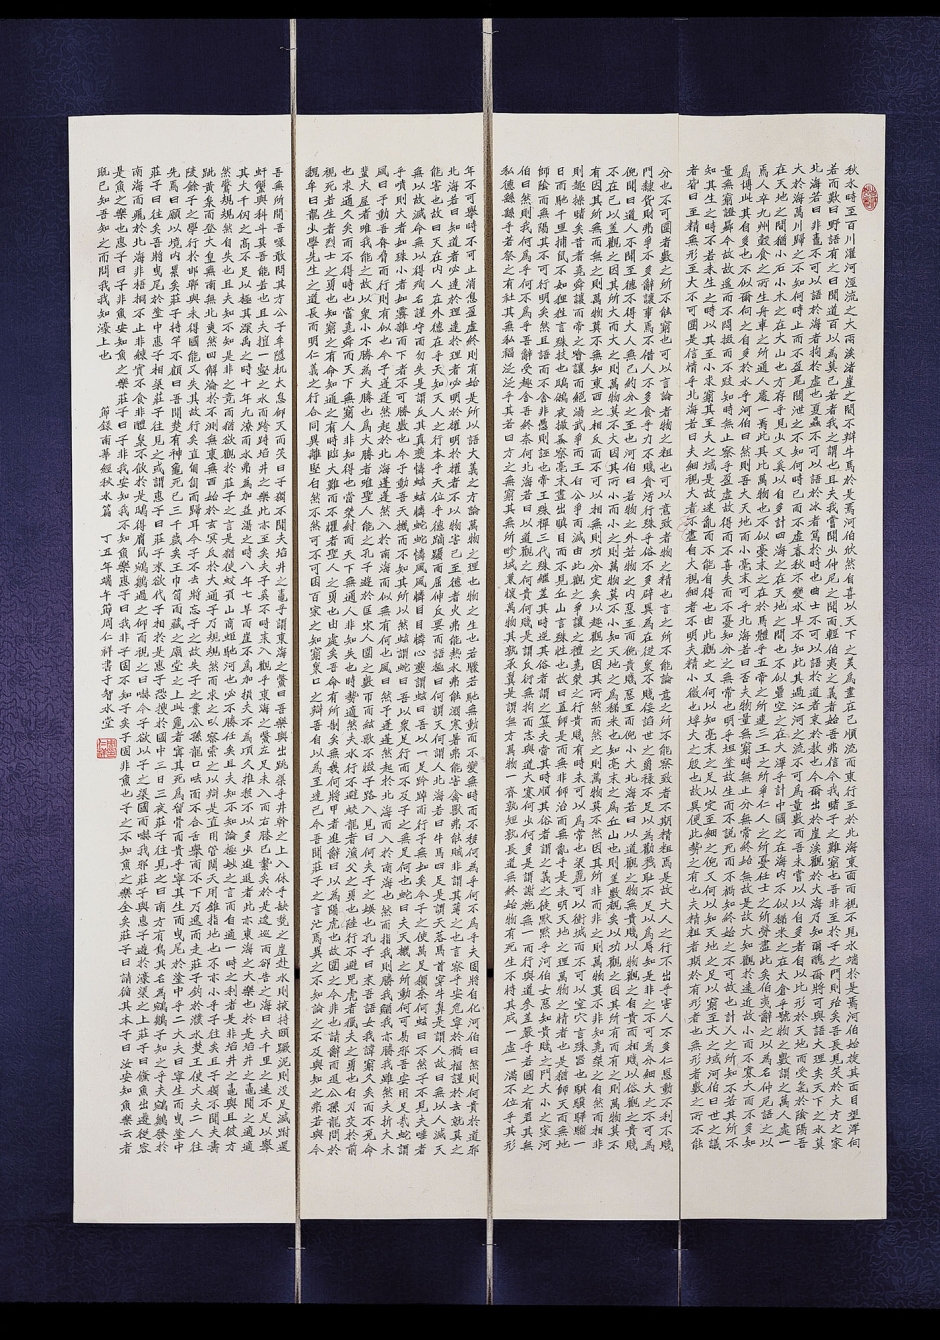 秋水時至百川灌河涇流之大兩涘渚崖之間不辯牛馬於是焉河伯欣然自喜以天下之美爲盡在己順流而東行至於北海東面而視不見水端於是焉河伯始旋其面目望洋向
若而歎曰野語有之曰聞道百以爲莫己若者我之謂也且夫我嘗聞少仲尼之聞而輕伯夷之義者始吾弗信今我睹子之難窮也吾非至於子之門則殆矣吾長見笑於大方之家
北海若曰井鼃不可以語於海者拘於虛也夏蟲不可以語於冰者篤於時也曲士不可以語於道者束於教也今爾出於崖涘觀於大海乃知爾醜爾將可與語大理矣天下之水莫
大於海萬川歸之不知何時止而不盈尾閭泄之不知何時已而不虛春秋不變水旱不知此其過江河之流不可爲量數而吾未嘗以此自多者自以比形於天地而受氣於陰陽吾
在天地之間猶小石小木之在大山也方存乎見少又奚以自多計四海之在天地之間也不似礨空之在大澤乎計中國之在海內不似稊米之在大倉乎號物之數謂之萬人處一
焉人卒九州穀食之所生舟車之所通人處一焉此其比萬物也不似豪末之在於馬體乎五帝之所連三王之所爭仁人之所憂任士之所勞盡此矣伯夷辭之以爲名仲尼語之以
爲博此其自多也不似爾向之自多於水乎河伯曰然則吾大天地而小毫末可乎北海若曰否夫物量無窮時無止分無常終始無故是故大知觀於遠近故小而不寡大而不多知
量無窮證曏今故故遙而不悶掇而不跂知時無止察乎盈虛故得而不喜失而不憂知分之無常也明乎坦塗故生而不說死而不禍知終始之不可故也計人之所知不若其所不
知其生之時不若未生之時以其至小求窮其至大之域是故迷亂而不能自得也由此觀之又何以知毫末之足以定至細之倪又何以知天地之足以窮至大之域河伯曰世之議
者皆曰至精無形至大不可圍是信情乎北海若曰夫自細視大者不盡自大視細者不明夫精小之微也垺大之殷也故異便此勢之有也夫精粗者期於有形者也無形者數之所不能
分也不可圍者數之所不能窮也可以言論者物之粗也可以意致者物之精也言之所不能論意之所不能察致者不期精粗焉是故大人之行不出乎害人不多仁恩動不爲利不賤
門隸貨財弗爭不多辭讓事焉不借人不多食乎力不賤貪污行殊乎俗不多辟異爲在從衆不賤佞諂世之爵祿不足以爲勸戮恥不足以爲辱知是非之不可爲分細大之不可爲
倪聞曰道人不聞至德不得大人無己約分之至也河伯曰若物之外若物之內惡至而倪貴賤惡至而倪小大北海若曰以道觀之物無貴賤以物觀之自貴而相賤以俗觀之貴賤
不在己以差觀之因其所大而大之則萬物莫不大因其所小而小之則萬物莫不小知天地之爲稊米也知毫末之爲丘山也則差數睹矣以功觀之因其所有而有之則萬物莫不
有因其所無而無之則萬物莫不無知東西之相反而不可以相無則功分定矣以趣觀之因其所然而然之則萬物莫不然因其所非而非之則萬物莫不非知堯桀之自然而相非
則趣操睹矣昔者堯舜讓而帝之噲讓而絕湯武爭而王白公爭而滅由此觀之爭讓之禮堯桀之行貴賤有時未可以爲常也梁麗可以衝城而不可以窒穴言殊器也騏驥驊騮一
日而馳千里捕鼠不如狸狌言殊技也鴟鵂夜撮蚤察毫末晝出瞋目而不見丘山言殊性也故曰蓋師是而無非師治而無亂乎是未明天地之理萬物之情者也是猶師天而無地
師陰而無陽其不可行明矣然且語而不舍非愚則誣也帝王殊禪三代殊繼差其時逆其俗者謂之篡夫當其時順其俗者謂之義之徒默默乎河伯女惡知貴賤之門大小之家河
伯曰然則我何爲乎何不爲乎吾辭受趣舍吾終奈何北海若曰以道觀之何貴何賤是謂反衍無拘而志與道大蹇何少何多是謂謝施無一而行與道參差嚴乎若國之有君其無
私德繇繇乎若祭之有社其無私福泛泛乎其若四方之無窮其無所畛域兼懷萬物其孰承翼是謂無方萬物一齊孰短孰長道無終始物有死生不恃其成一虛一滿不位乎其形
年不可舉時不可止消息盈虛終則有始是所以語大義之方論萬物之理也物之生也若驟若馳無動而不變無時而不移何爲乎何不爲乎夫固將自化河伯曰然則何貴於道邪
北海若曰知道者必達於理達於理者必明於權明於權者不以物害己至德者火弗能熱水弗能溺寒暑弗能害禽獸弗能賊非謂其薄之也言察乎安危寧於禍福謹於去就莫之
能害也故曰天在內人在外德在乎天知天人之行本乎天位乎德蹢躅而屈伸反要而語極曰何謂天何謂人北海若曰牛馬四足是謂天落馬首穿牛鼻是謂人故曰無以人滅天
無以故滅命無以得殉名謹守而勿失是謂反其真夔憐蚿蚿憐蛇蛇憐風風憐目目憐心夔謂蚿曰吾以一足趻踔而行予無如矣今子之使萬足獨奈何蚿曰不然子不見夫唾者
乎噴則大者如珠小者如霧雜而下者不可勝數也今予動吾天機而不知其所以然蚿謂蛇曰吾以衆足行而不及子之無足何也蛇曰夫天機之所動何可易邪吾安用足哉蛇謂
風曰予動吾脊脅而行則有似也今子蓬蓬然起於北海蓬蓬然入於南海而似無有何也風曰然予蓬蓬然起於北海而入於南海也然而指我則勝我鰌我亦勝我雖然夫折大木
蜚大屋者唯我能之故以衆小不勝爲大勝也爲大勝者唯聖人能之孔子遊於匡宋人圍之數匝而絃歌不惙子路入見曰何夫子之娛也孔子曰來吾語女我諱窮久矣而不免命
也求通久矣而不得時也當堯舜而天下無窮人非知得也當桀紂而天下無通人非知失也時勢適然夫水行不避蛟龍者漁父之勇也陸行不避兕虎者獵夫之勇也白刃交於前
視死若生者烈士之勇也知窮之有命知通之有時臨大難而不懼者聖人之勇也由處矣吾命有所制矣無幾何將甲者進辭曰以爲陽虎也故圍之今非也請辭而退公孫龍問於
魏牟曰龍少學先王之道長而明仁義之行合同異離堅白然不然可不可困百家之知窮衆口之辯吾自以爲至達已今吾聞莊子之言汒焉異之不知論之不及與知之弗若與今
吾無所開吾喙敢問其方公子牟隱机太息仰天而笑曰子獨不聞夫埳井之鼃乎謂東海之鱉曰吾樂與出跳梁乎井幹之上入休乎缺甃之崖赴水則接腋持頤蹶泥則沒足滅跗還
虷蟹與科斗莫吾能若也且夫擅一壑之水而跨跱埳井之樂此亦至矣夫子奚不時來入觀乎東海之鱉左足未入而右膝已縶矣於是逡巡而卻告之海曰夫千里之遠不足以舉
其大千仞之高不足以極其深禹之時十年九潦而水弗爲加益湯之時八年七旱而崖不爲加損夫不爲頃久推移不以多少進退者此亦東海之大樂也於是埳井之鼃聞之適適
然驚規規然自失也且夫知不知是非之竟而猶欲觀於莊子之言是猶使蚊負山商蚷馳河也必不勝任矣且夫知不知論極妙之言而自適一時之利者是非埳井之鼃與且彼方
跐黃泉而登大皇無南無北奭然四解淪於不測無東無西始於玄冥反於大通子乃規規然而求之以察索之以辯是直用管闚天用錐指地也不亦小乎子往矣且子獨不聞夫壽
陵餘子之學行於邯鄲與未得國能又失其故行矣直匍匐而歸耳今子不去將忘子之故失子之業公孫龍口呿而不合舌舉而不下乃逸而走莊子釣於濮水楚王使大夫二人往
先焉曰願以境內累矣莊子持竿不顧曰吾聞楚有神龜死已三千歲矣王巾笥而藏之廟堂之上此龜者寧其死爲留骨而貴乎寧其生而曳尾於塗中乎二大夫曰寧生而曳尾塗中
莊子曰往矣吾將曳尾於塗中惠子相梁莊子往見之或謂惠子曰莊子來欲代子相於是惠子恐搜於國中三日三夜莊子往見之曰南方有鳥其名爲鵷鶵子知之乎夫鵷鶵發於
南海而飛於北海非梧桐不止非練實不食非醴泉不飲於是鴟得腐鼠鵷鶵過之仰而視之曰嚇今子欲以子之梁國而嚇我邪莊子與惠子遊於濠梁之上莊子曰儵魚出遊從容
是魚之樂也惠子曰子非魚安知魚之樂莊子曰子非我安知我不知魚之樂惠子曰我非子固不知子矣子固非魚也子之不知魚之樂全矣莊子曰請循其本子曰汝安知魚樂云者
既已知吾知之而問我我知之濠上也
節錄南華經秋水篇 丁五年端午節周仁祥書于智水堂